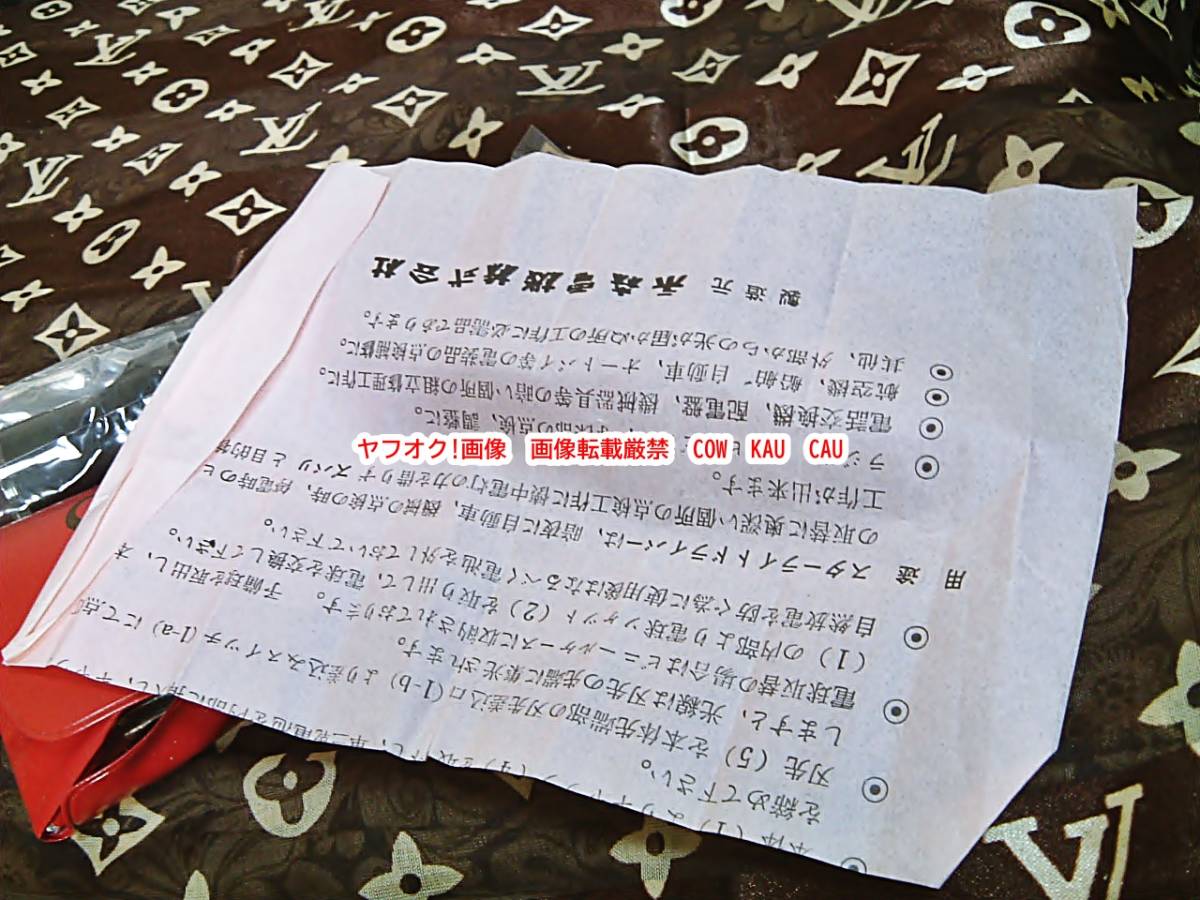 本体 (1) より
を締めて下さい。
◎ 刃先 (5) を本体先端部の刃先差込口 (1-b) より差込みスイッチ (1-a) にて点
しますと、光線は刃先の先端に集光されます。
◎ 電球取替の場合はビニールケースに収納されております。予備球を取出し、本
(1) の内部より電球ソケット (2) を取り出して、電球を交換して下さい。
◎ 自然放電を防ぐ為に使用後はなるべく電池を外しておいて下さい。
用途 スターライトドライバーは、暗夜に自動車、機械の点検の時、停電時のヒ
の取替に奥深い個所の点検工作に懐中電灯の力を借りずズバリと目的
工作が出来ます。
◎ ラジ 子部品の点検、調整に。
◎ 電話交換機、配電盤、機械器具等の暗い個所の組立修理工作に。
◎ 航空機、船舶、自動車、オートバイ等の電装品の点検補修に。
◎ 其他、外部からの光が届かぬ所の工作に必需品であります。
製造元 永森電機株式会社
ヤフオク!画像 画像転載厳禁 COW KAU CAU